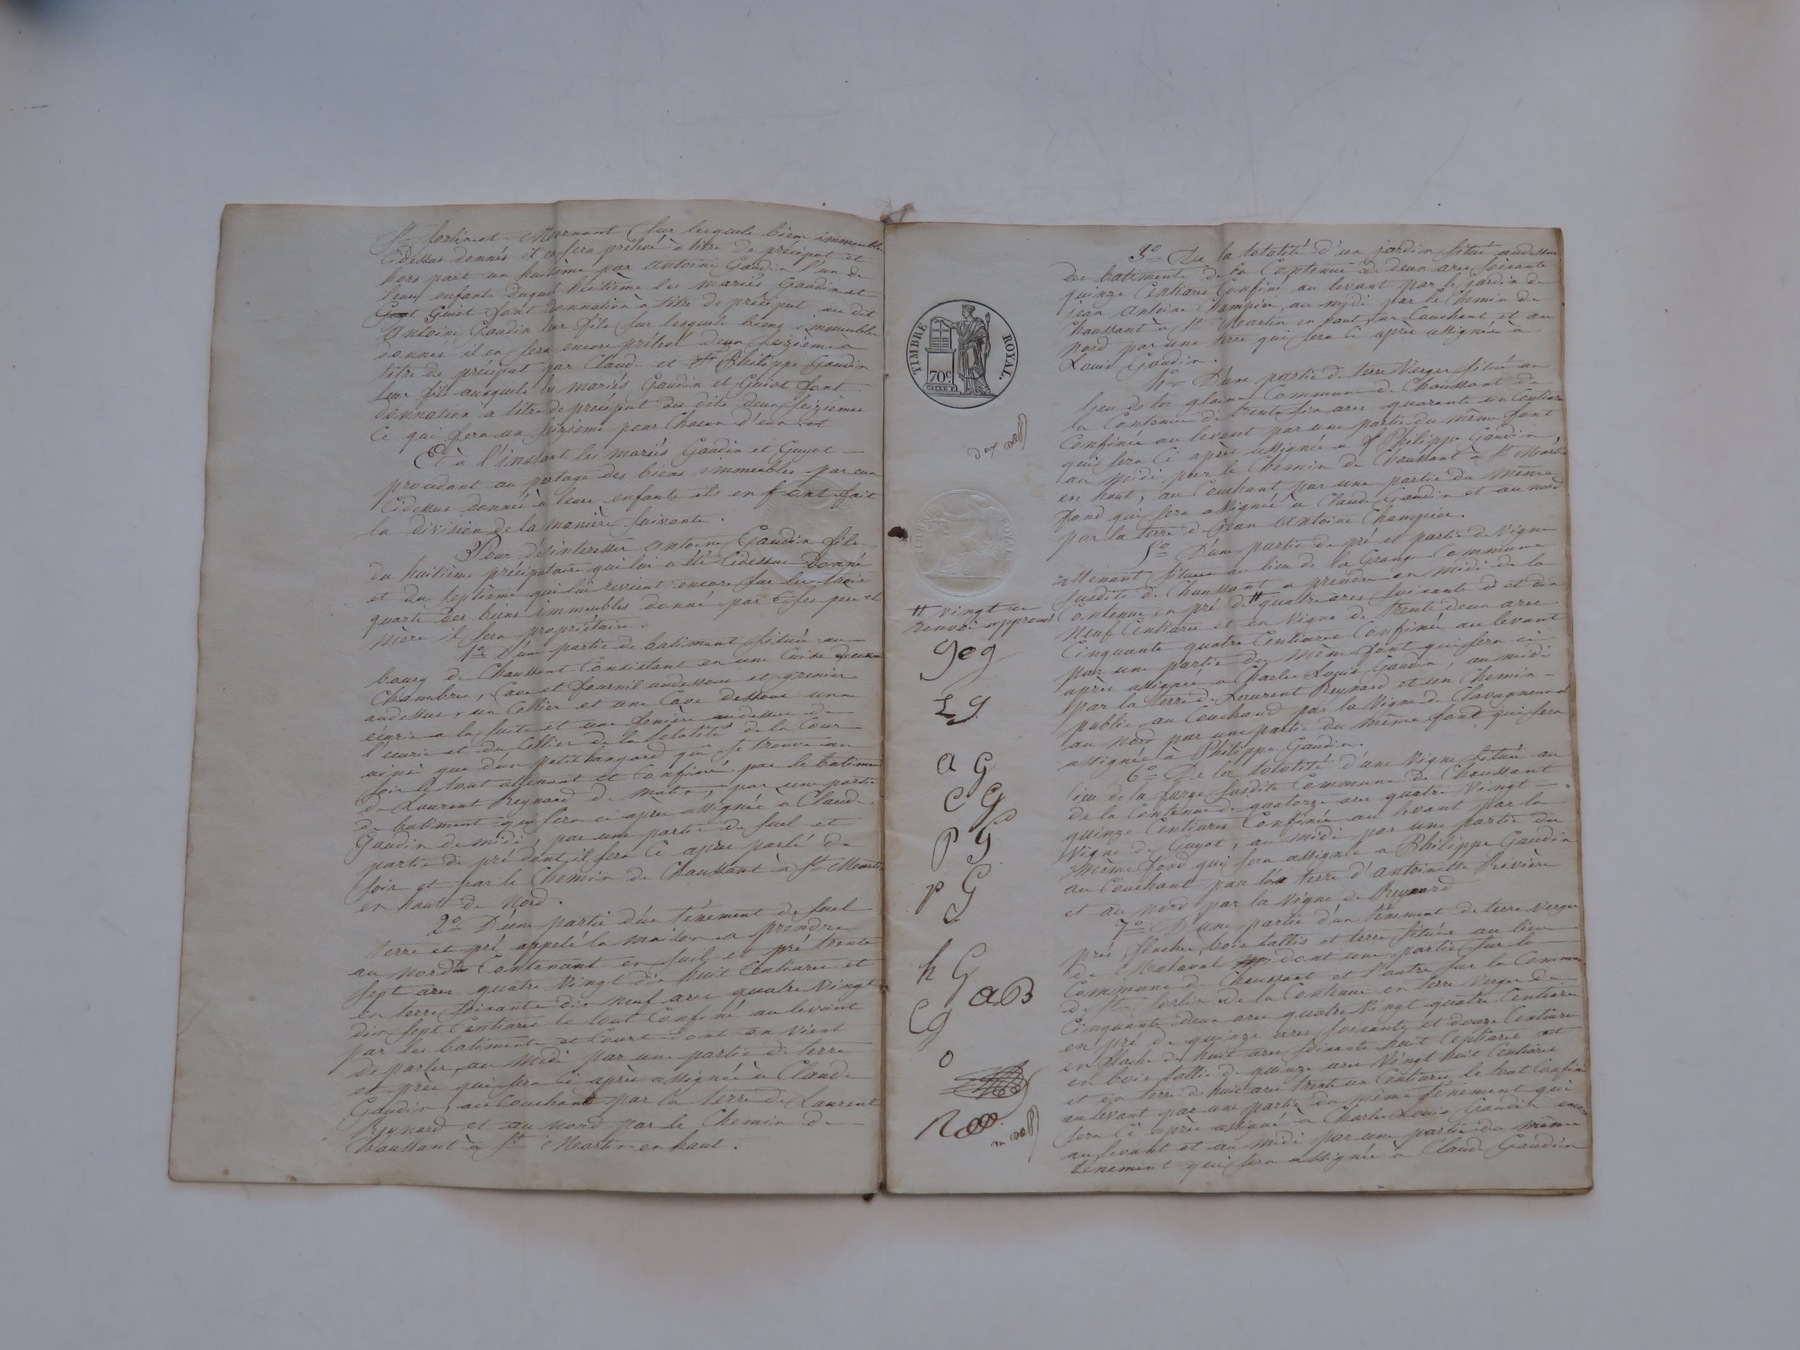 St Sorlin et Mornant sur lesquels biens immeubles
cidessus donnés il en sera prélevé à titre de préciput et
hors part un huitième par Antoine Gaudin l'un de
leurs enfants duquel huitième les mariés Gaudin et
Guiot font donnation à titre de préciput au dit
Antoine Gaudin leur fils sur lesquels biens immeubles
donnés il en sera encore prélevé deux seizièmes à
titre de préciput par Claude et Philippe Gaudin
leur fils auxquels les mariés Gaudin et Guiot font
donnation à titre de préciput des dits deux seizièmes
Ce qui fera un seizième pour chacun d'eux
Et à l'instant les mariés Gaudin et Guyot
procédant au partage des biens immeubles par eux
Cidessus donnés à leurs enfants ils en font fait
la division de la manière suivante.
Pour désintéresser Antoine Gaudin fils
du huitième préciputaire qui lui a été Cidessus donné
et du septième qui lui revient encore sur les trois
quarts des biens immeubles donnés par ses père et
mère il sera propriétaire.
1o D'une partie de batiment située au
bourg de Chaussant Consistant en une Cuisine
Chambres, Cave et fournil audessous et grenier
audessus, un Cellier et une Cave dessous une
écurie a la suite et une fenière audessus de
l'écurie et du Cellier de la totalité de la Cour
ainsi que d'un petit hangard qui se trouve au
soir le tout attenant et Confiné par le batiment
de Laurent Reynard de matin, par une partie
de batiment qui sera ci après assignée à Claude
Gaudin de midi, par une partie de suel et
partie de pré dont il sera Ci après parlé de
soir et par le Chemin de Chaussant à St Martin
en haut de nord.
2o D'une partie d'un tènement de suel
terre et pré appelé la maison a prendre
au nord Contenant en suel et pré trente
sept ares quatre Vingt dix huit Centiares et
en terre soixante dix neuf ares quatre Vingt
dix sept Centiares le tout Confiné au levant
par les batiments et Court dont on vient
de parler, au Midi par une partie de terre
et pré qui sera ci après assignée à Claude
Gaudin, au Couchant par la terre de Laurent
Reynard et au nord par le Chemin de
Chaussant à St Martin en haut.
TIMBRE ROYAL.
70c
# Vingt
Renvoi approuvé
G e g
L g
a G
C G
P G
p G
h G
C g
a B
3o De la totalité d'un jardin situé audessus
des batiments de la Contenue de deux ares soixante
quinze Centiares Confiné au levant par le jardin de
jean Antoine Champier, au midi par le Chemin de
Chaussant à St Martin en haut, au Couchant et au
nord par une terre qui sera ci après assignée à
Louis Gaudin.
4o D'une partie de terre Verger située au
lieu de los glaines Commune de Chaussant de
la Contenue de trente six ares quarante un Centiares
Confinée au levant par une partie du même fond
qui sera Ci après assignée à Philippe Gaudin,
au Midi par le Chemin de Chaussant à St Martin
en haut, au Couchant par une partie du même
fond qui sera assignée à Claude Gaudin et au nord
par la terre de Jean Antoine Champier.
5o D'une partie de pré et partie de Vigne
attenant située au lieu de la Grang Commune
susdite de Chaussant a prendre en midi de la
Contenue en pré d # quatre ares soixante et dix
neuf Centiares et en Vigne de trente deux ares
Cinquante quatre Centiares Confinée au levant
par une partie du même fond qui sera ci
après assignée à Charles Louis Gaudin, au midi
par la terre de Laurent Reynard et un Chemin
public au Couchand par la Vigne de
au nord par une partie du même fond qui sera
assignée à Philippe Gaudin.
6o De la totalité d'une Vigne située au
lieu de la farge susdite Commune de Chaussant
de la Contenue de quatorze ares quatre Vingt
quinze Centiares Confinée au levant par la
Vigne de Guyot, au midi par une partie du
même fond qui sera assignée à Philippe Gaudin
au Couchant par la terre d'antoinette Rivière
et au nord par la Vigne de Reynard
7o D'une partie d'un tènement de terre Verger
prés, fleches, bois taillis et terre située au lieu
de Malaval dont une partie sur la
Commune de Chaussant et l'autre sur la Commune
de St Sorlin de la Contenue en terre Verger de
Cinquante deux ares quatre Vingt quatre Centiares
en pré de quinze ares soixante et douze Centiares
en fleche de huit ares soixante huit Centiares et
en bois taillis de quinze ares Vingt huit Centiares
et en terre de huit ares trente un Centiares le tout Confiné
au levant par une partie du même tènement qui
sera Ci après assigné à Charles Louis Gaudin encore
au levant et au midi par une partie du même
tènement qui sera assignée à Claude Gaudin